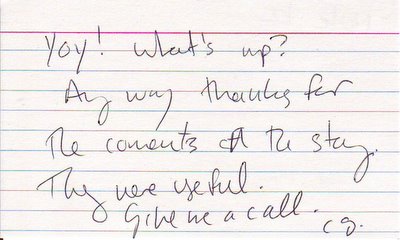 Yoy! What's up?
Any way thanks for
The coments of the story.
They were useful.
Give me a call.